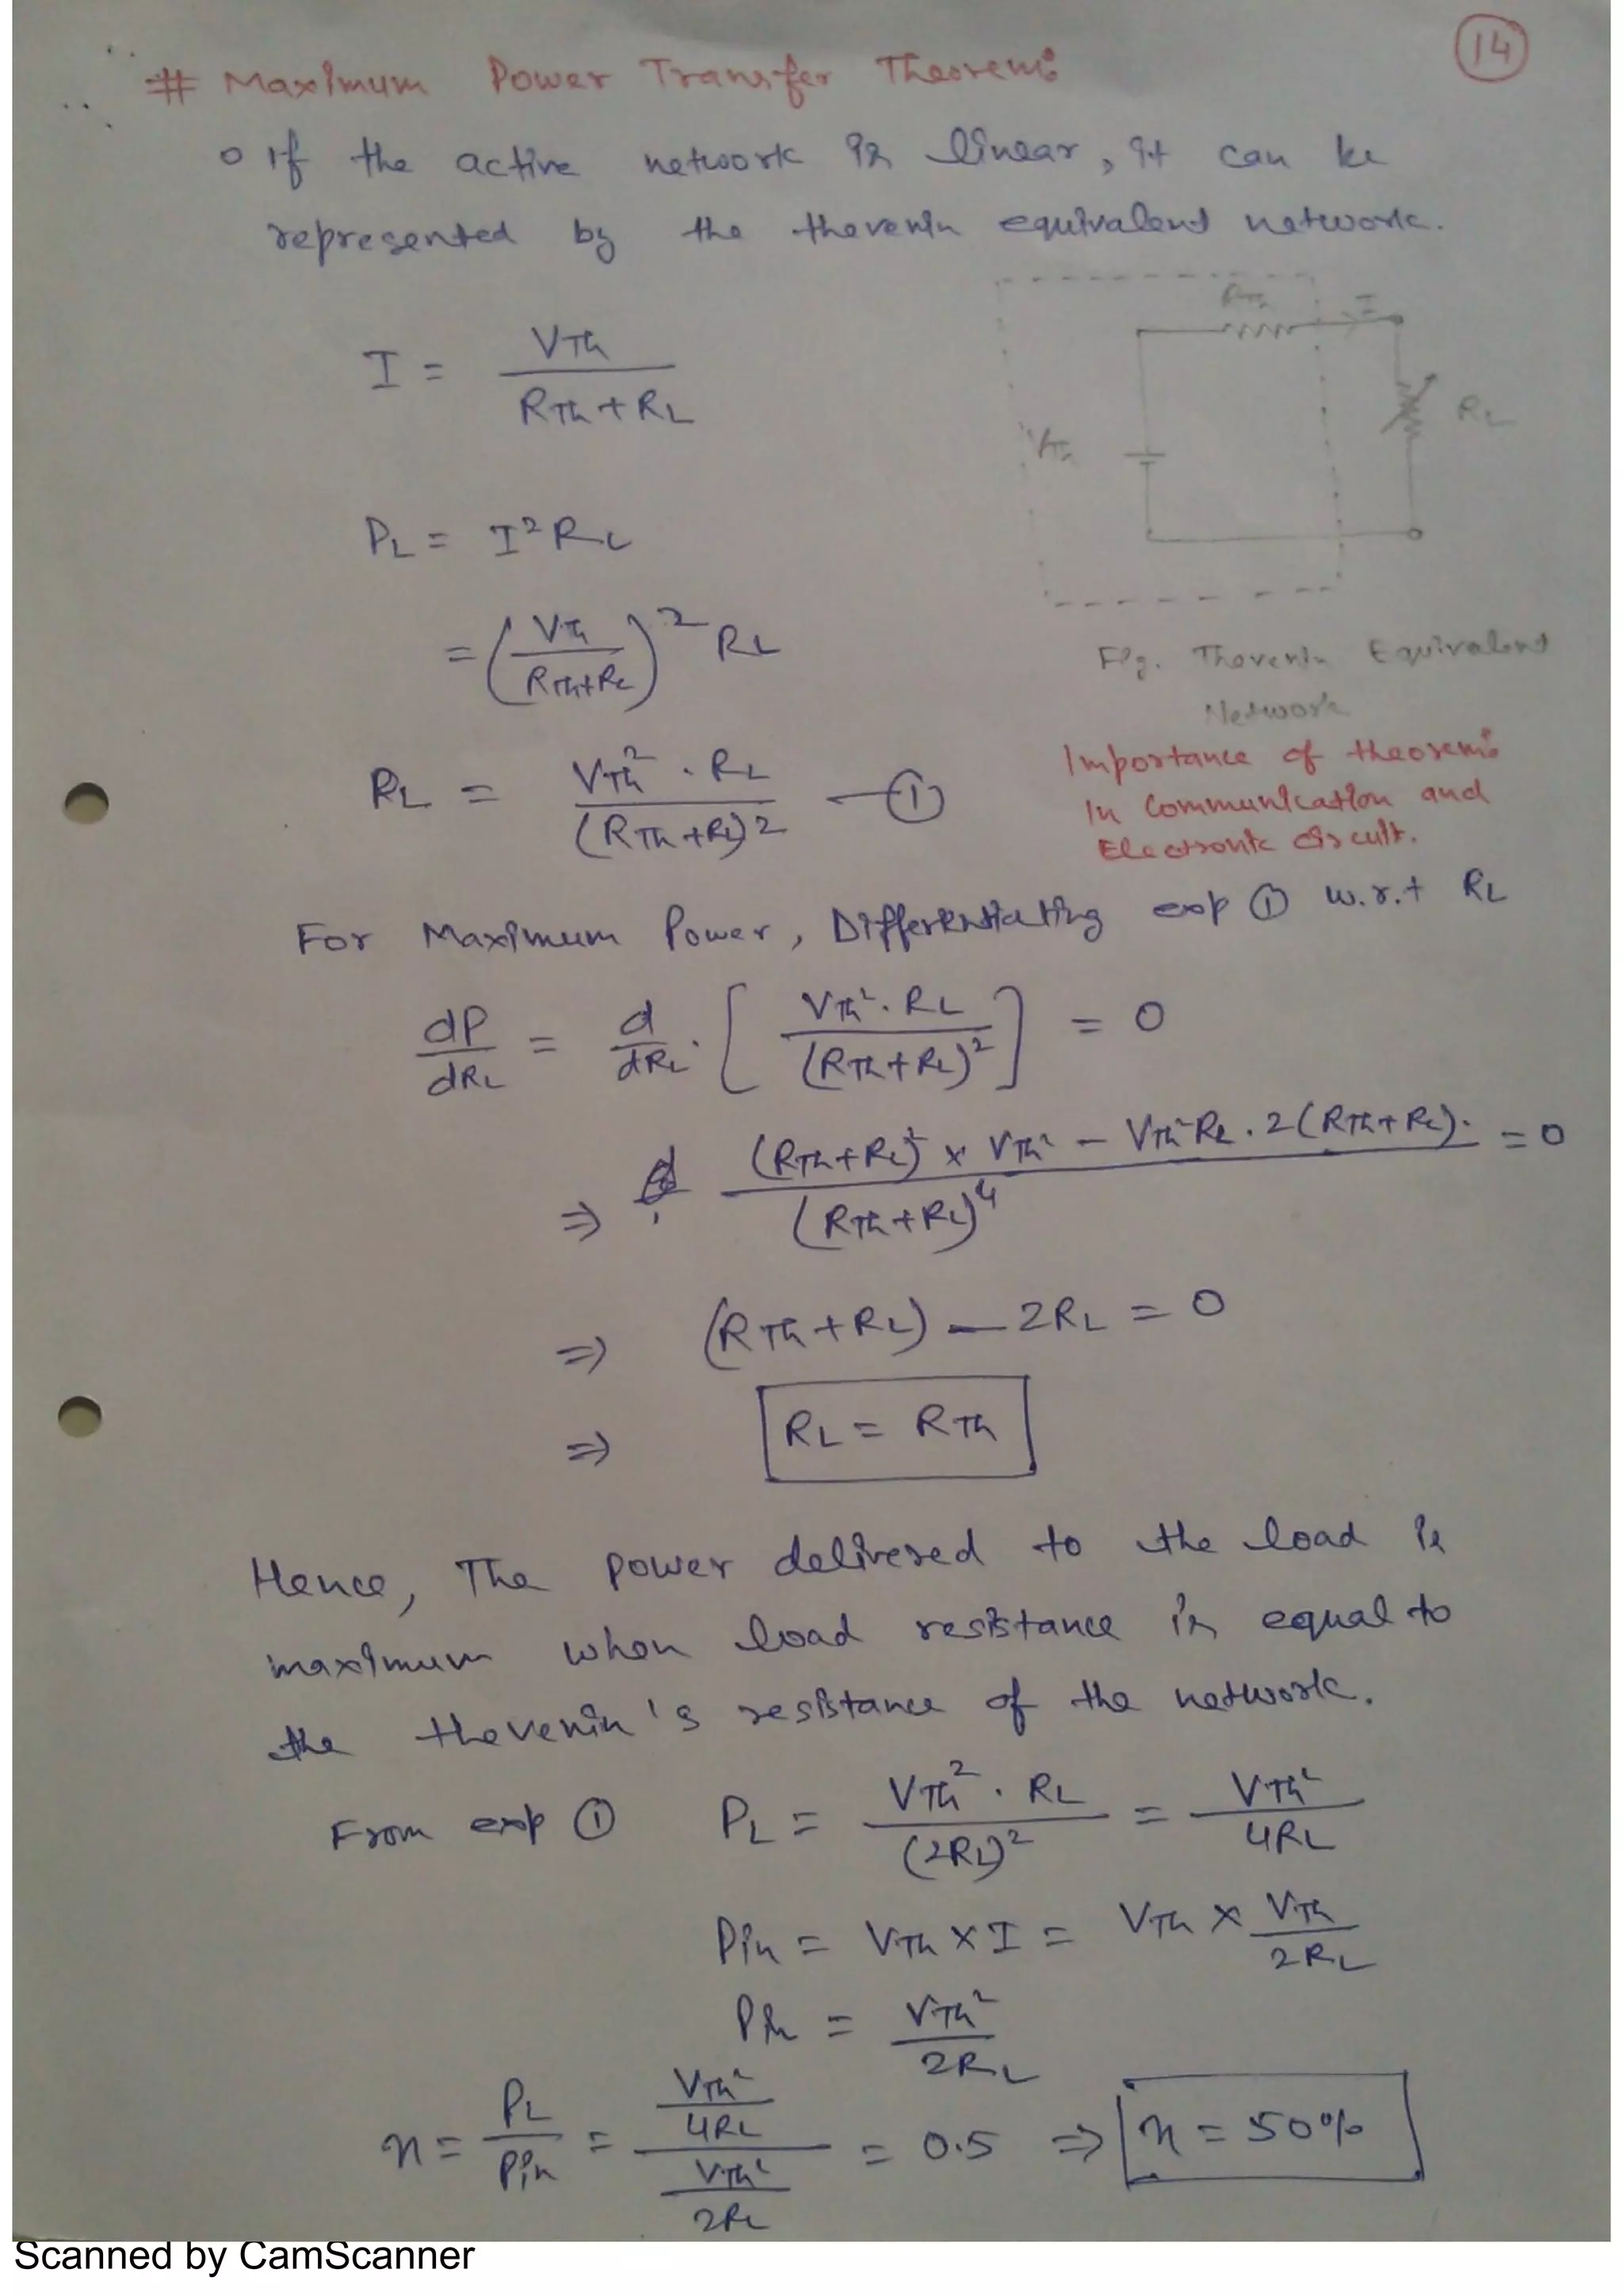 14
# Maximum Power Transfer Theorem:
o If the active network is linear, it can be
represented by the thevenin equivalent network.
RTh I
I = VTh / (RTh + RL)
VTh
RL
PL = I² RL
= (VTh / (RTh+RL))² RL
Fig. Thevenin Equivalent
Network
RL = VTh² . RL / (RTh + RL)² — ①
Importance of theorem:
In Communication and
Electronic circuit.
For Maximum Power, Differentiating exp ① w.r.t RL
dP/dRL = d/dRL . [ VTh² . RL / (RTh + RL)² ] = 0
⇒ (RTh+RL)² × VTh² − VTh² RL . 2(RTh+RL). / (RTh+RL)⁴ = 0
⇒ (RTh + RL) − 2RL = 0
⇒ RL = RTh
Hence, The power delivered to the load is
maximum when load resistance is equal to
the thevenin's resistance of the network.
From exp ① PL = VTh² . RL / (2RL)² = VTh² / 4RL
Pin = VTh × I = VTh × VTh / 2RL
Pin = VTh² / 2RL
η = PL / Pin = (VTh² / 4RL) / (VTh² / 2RL) = 0.5 ⇒ η = 50%
Scanned by CamScanner